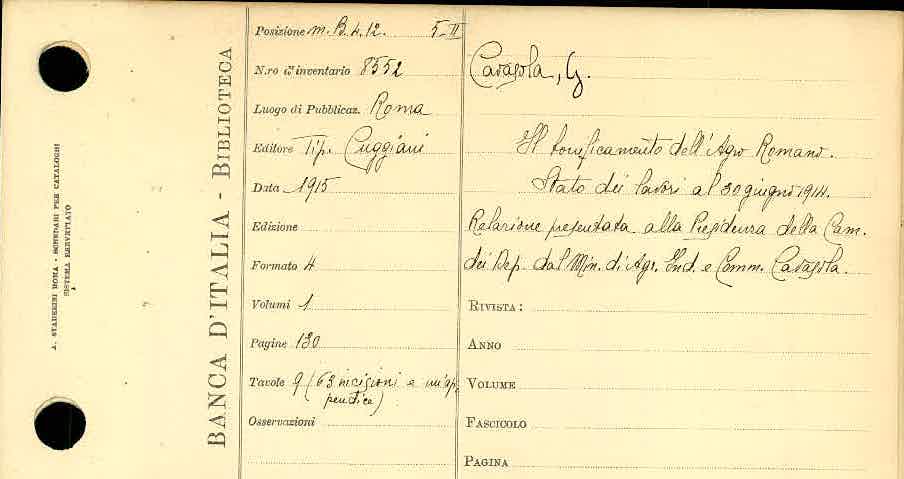 A. STADERINI ROMA - SCHEDARI PER CATALOGHI
SISTEMA BREVETTATO
BANCA D'ITALIA - BIBLIOTECA
Posizione m. B. 4. 12. 5-II
N.ro d'inventario 8552
Luogo di Pubblicaz. Roma
Editore Tip. Cuggiani
Data 1915
Edizione
Formato 4
Volumi 1
Pagine 130
Tavole 9 (63 incisioni e un'ap.
pendice)
Osservazioni
Cavasola, G.
Il bonificamento dell'Agro Romano.
Stato dei lavori al 30 giugno 1914.
Relazione presentata alla Presidenza della Cam.
dei Dep. dal Min. di Agr. Ind. e Comm. Cavasola.
RIVISTA:
ANNO
VOLUME
FASCICOLO
PAGINA